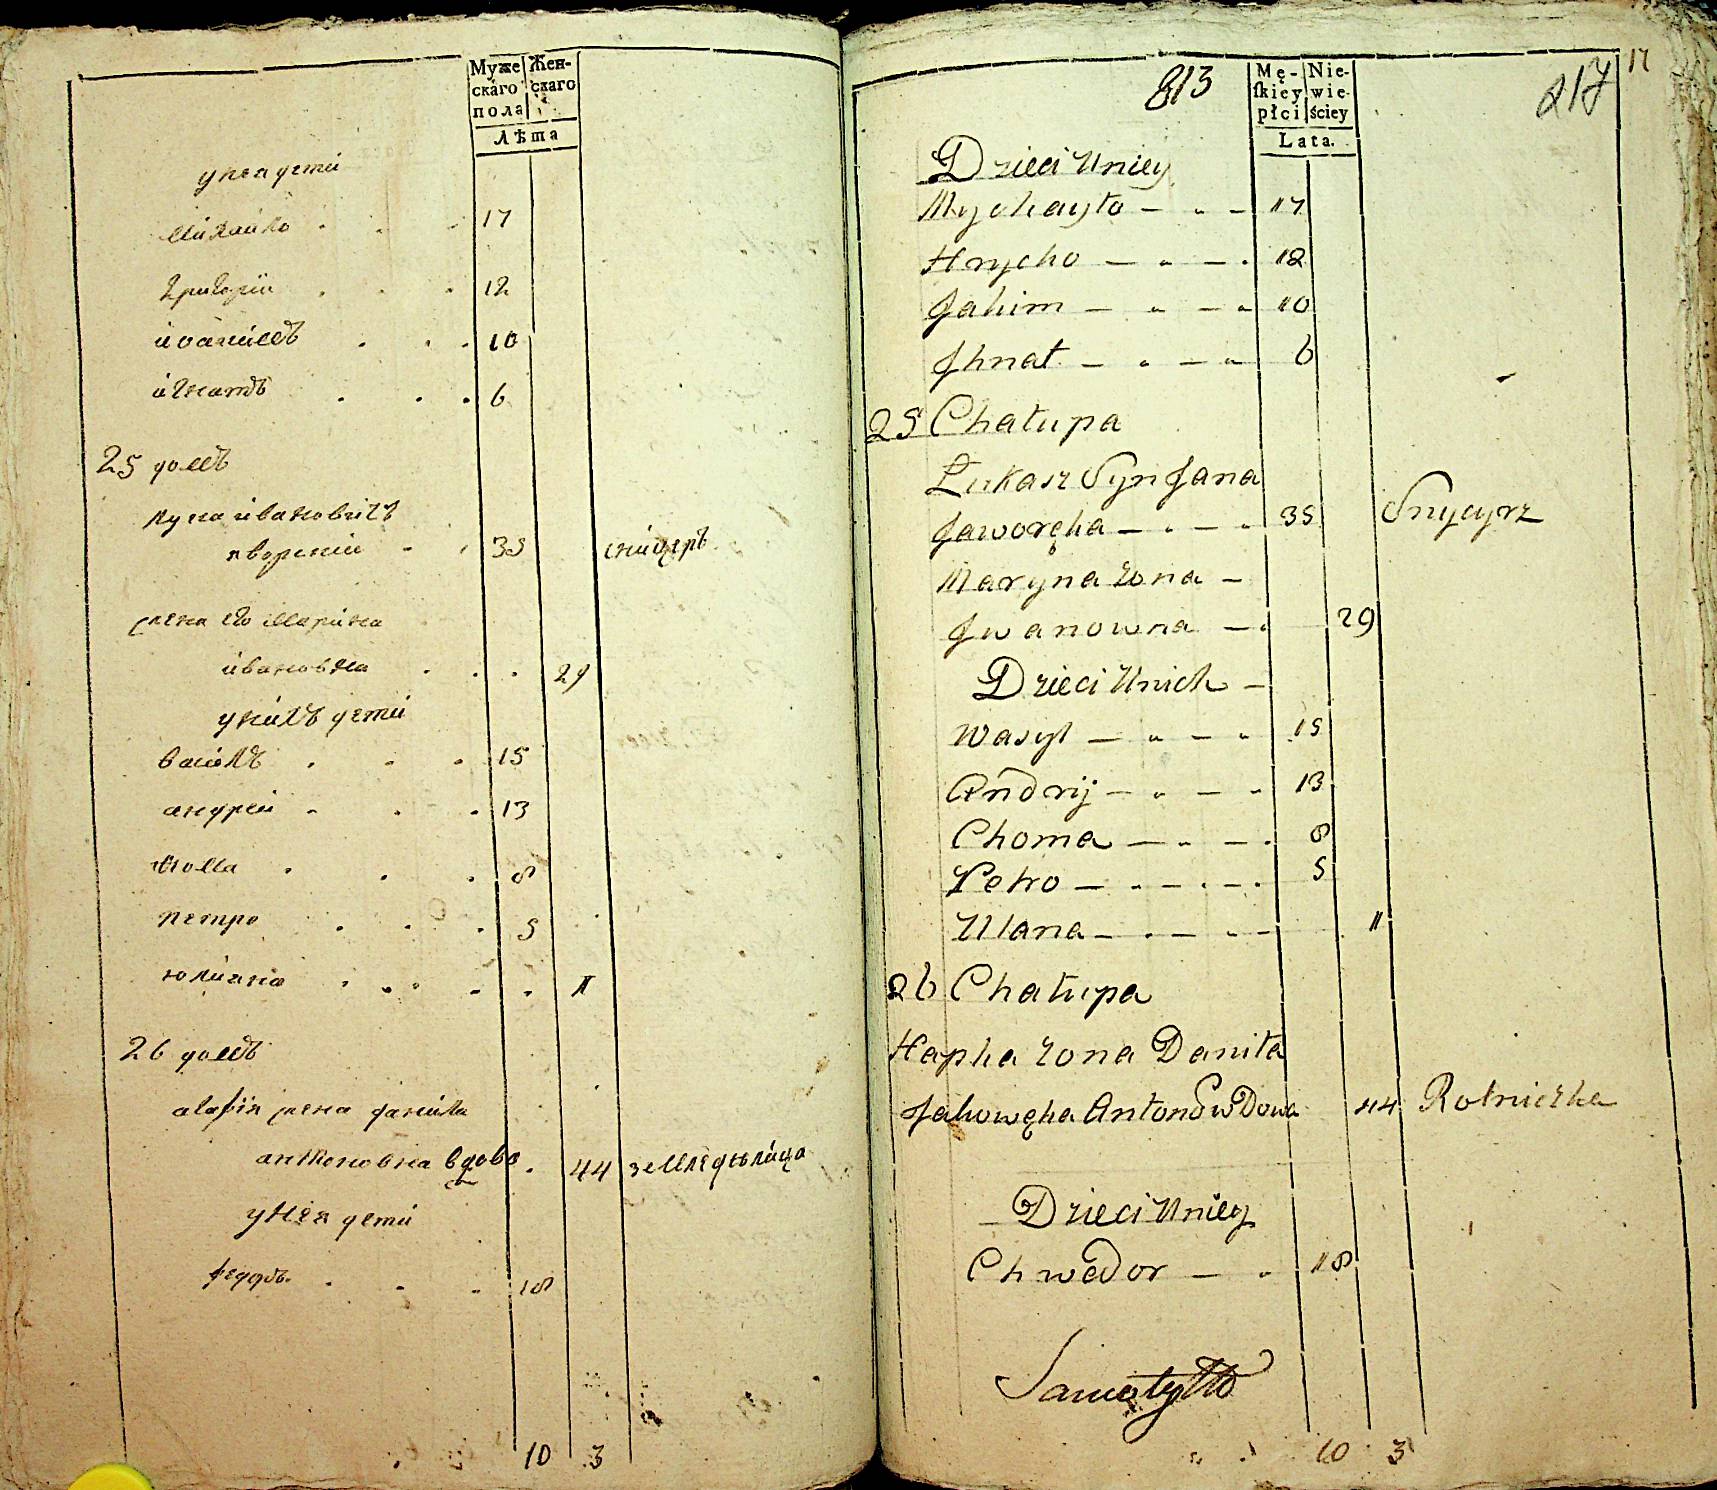 Муже
скаго
пола
Жен-
скаго
Лѣта
у нея дети
михаило 17
григорiи 12
иоакимъ 10
игнатъ 6
25 домъ
лука ивановичъ
яворскiи 35 сницеръ
жена его марина
ивановна 29
у нихъ дети
василь 15
андреи 13
хома 8
петро 5
юлиана 1
26 домъ
агафiя жена данила
антоновна вдова 44 земледѣлица
у нея дети
федоръ 18
10 3
813
217
17
Mę-
skiey
płci
Nie-
wie-
ściey
Lata.
Dzieci Uniey
Mychayło — „ — 17
Hrycho — „ — 12
Jahim — „ — „ 10
Jhnat — „ — „ 6
25 Chałupa
Łukasz Syn Jana
Jaworęka — „ — „ 35 Snycyrz
Maryna żona —
Jwanowna — 29
Dzieci Unich —
Wasyl — „ — „ 15
Andrij — „ — „ 13
Choma — „ — 8
Petro — „ — „ — 5
Ulana — „ — „ — 1
26 Chałupa
Hapka żona Daniła
Jakowęka Antonow Dowa 44 Rolniczka
Dzieci Uniey
Chwedor — „ 18
10 3